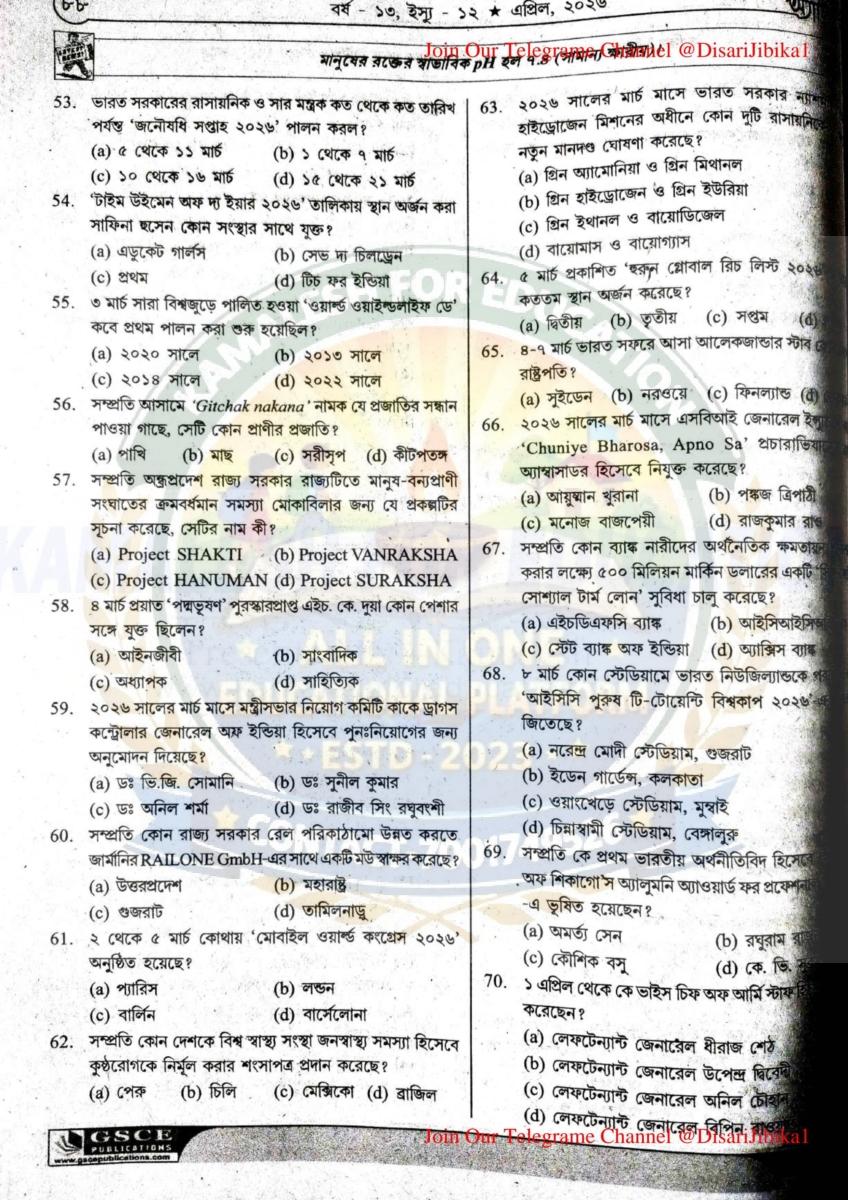 ৮৮
বর্ষ - ১৩, ইস্যু - ১২ ★ এপ্রিল, ২০২৬
Join Our Telegrame Channel @DisariJibika1
মানুষের রক্তের স্বাভাবিক pH হল ৭.৪ (সামান্য ক্ষারীয়)।
53. ভারত সরকারের রাসায়নিক ও সার মন্ত্রক কত থেকে কত তারিখ
পর্যন্ত ‘জনৌষধি সপ্তাহ ২০২৬’ পালন করল?
(a) ৫ থেকে ১১ মার্চ (b) ১ থেকে ৭ মার্চ
(c) ১০ থেকে ১৬ মার্চ (d) ১৫ থেকে ২১ মার্চ
54. ‘টাইম উইমেন অফ দ্য ইয়ার ২০২৬’ তালিকায় স্থান অর্জন করা
সাফিনা হুসেন কোন সংস্থার সাথে যুক্ত?
(a) এডুকেট গার্লস (b) সেভ দ্য চিলড্রেন
(c) প্রথম (d) টিচ ফর ইন্ডিয়া
55. ৩ মার্চ সারা বিশ্বজুড়ে পালিত হওয়া ‘ওয়ার্ল্ড ওয়াইল্ডলাইফ ডে’
কবে প্রথম পালন করা শুরু হয়েছিল?
(a) ২০২০ সালে (b) ২০১৩ সালে
(c) ২০১৪ সালে (d) ২০২২ সালে
56. সম্প্রতি আসামে ‘Gitchak nakana’ নামক যে প্রজাতির সন্ধান
পাওয়া গাছে, সেটি কোন প্রাণীর প্রজাতি?
(a) পাখি (b) মাছ (c) সরীসৃপ (d) কীটপতঙ্গ
57. সম্প্রতি অন্ধ্রপ্রদেশ রাজ্য সরকার রাজ্যটিতে মানুষ-বন্যপ্রাণী
সংঘাতের ক্রমবর্ধমান সমস্যা মোকাবিলার জন্য যে প্রকল্পটির
সূচনা করেছে, সেটির নাম কী?
(a) Project SHAKTI (b) Project VANRAKSHA
(c) Project HANUMAN (d) Project SURAKSHA
58. ৪ মার্চ প্রয়াত ‘পদ্মভূষণ’ পুরস্কারপ্রাপ্ত এইচ. কে. দুয়া কোন পেশার
সঙ্গে যুক্ত ছিলেন?
(a) আইনজীবী (b) সাংবাদিক
(c) অধ্যাপক (d) সাহিত্যিক
59. ২০২৬ সালের মার্চ মাসে মন্ত্রীসভার নিয়োগ কমিটি কাকে ড্রাগস
কন্ট্রোলার জেনারেল অফ ইন্ডিয়া হিসেবে পুনঃনিয়োগের জন্য
অনুমোদন দিয়েছে?
(a) ডঃ ভি.জি. সোমানি (b) ডঃ সুনীল কুমার
(c) ডঃ অনিল শর্মা (d) ডঃ রাজীব সিং রঘুবংশী
60. সম্প্রতি কোন রাজ্য সরকার রেল পরিকাঠামো উন্নত করতে
জার্মানির RAILONE GmbH-এর সাথে একটি মউ স্বাক্ষর করেছে?
(a) উত্তরপ্রদেশ (b) মহারাষ্ট্র
(c) গুজরাট (d) তামিলনাড়ু
61. ২ থেকে ৫ মার্চ কোথায় ‘মোবাইল ওয়ার্ল্ড কংগ্রেস ২০২৬’
অনুষ্ঠিত হয়েছে?
(a) প্যারিস (b) লন্ডন
(c) বার্লিন (d) বার্সেলোনা
62. সম্প্রতি কোন দেশকে বিশ্ব স্বাস্থ্য সংস্থা জনস্বাস্থ্য সমস্যা হিসেবে
কুষ্ঠরোগকে নির্মূল করার শংসাপত্র প্রদান করেছে?
(a) পেরু (b) চিলি (c) মেক্সিকো (d) ব্রাজিল
63. ২০২৬ সালের মার্চ মাসে ভারত সরকার
হাইড্রোজেন মিশনের অধীনে কোন দুটি
নতুন মানদণ্ড ঘোষণা করেছে?
(a) গ্রিন অ্যামোনিয়া ও গ্রিন মিথানল
(b) গ্রিন হাইড্রোজেন ও গ্রিন ইউরিয়া
(c) গ্রিন ইথানল ও বায়োডিজেল
(d) বায়োমাস ও বায়োগ্যাস
64. ৫ মার্চ প্রকাশিত ‘হুরুন গ্লোবাল রিচ লিস্ট ২০২৬
কততম স্থান অর্জন করেছে?
(a) দ্বিতীয় (b) তৃতীয় (c) সপ্তম (d)
65. ৪-৭ মার্চ ভারত সফরে আসা আলেকজান্ডার স্টাব
রাষ্ট্রপতি?
(a) সুইডেন (b) নরওয়ে (c) ফিনল্যান্ড (d)
66. ২০২৬ সালের মার্চ মাসে এসবিআই জেনারেল
‘Chuniye Bharosa, Apno Sa’
অ্যাম্বাসাডর হিসেবে নিযুক্ত করেছে?
(a) আয়ুষ্মান খুরানা (b) পঙ্কজ ত্রিপাঠী
(c) মনোজ বাজপেয়ী (d) রাজকুমার রাও
67. সম্প্রতি কোন ব্যাঙ্ক নারীদের অর্থনৈতিক
করার লক্ষ্যে ৫০০ মিলিয়ন মার্কিন ডলারের একটি
সোশ্যাল টার্ম লোন’ সুবিধা চালু করেছে?
(a) এইচডিএফসি ব্যাঙ্ক (b) আইসিআইসিআই
(c) স্টেট ব্যাঙ্ক অফ ইন্ডিয়া (d) অ্যাক্সিস ব্যাঙ্ক
68. ৮ মার্চ কোন স্টেডিয়ামে ভারত নিউজিল্যান্ডকে
‘আইসিসি পুরুষ টি-টোয়েন্টি বিশ্বকাপ ২০২৬’
জিতেছে?
(a) নরেন্দ্র মোদী স্টেডিয়াম, গুজরাট
(b) ইডেন গার্ডেন্স, কলকাতা
(c) ওয়াংখেড়ে স্টেডিয়াম, মুম্বাই
(d) চিন্নাস্বামী স্টেডিয়াম, বেঙ্গালুরু
69. সম্প্রতি কে প্রথম ভারতীয় অর্থনীতিবিদ হিসেবে
অফ শিকাগো’স অ্যালুমনি অ্যাওয়ার্ড ফর
-এ ভূষিত হয়েছেন?
(a) অমর্ত্য সেন (b) রঘুরাম
(c) কৌশিক বসু (d) কে. ভি.
70. ১ এপ্রিল থেকে কে ভাইস চিফ অফ আর্মি স্টাফ
করেছেন?
(a) লেফটেন্যান্ট জেনারেল ধীরাজ শেঠ
(b) লেফটেন্যান্ট জেনারেল উপেন্দ্র দ্বিবেদী
(c) লেফটেন্যান্ট জেনারেল অনিল চৌহান
(d) লেফটেন্যান্ট জেনারেল বিপিন রাওয়াত
KAMALESH FOR EDUCATION
ALL IN ONE
EDUCATIONAL PLATFORM
ESTD - 2023
GSCE
PUBLICATIONS
www.gscepublications.com
Join Our Telegrame Channel @DisariJibika1